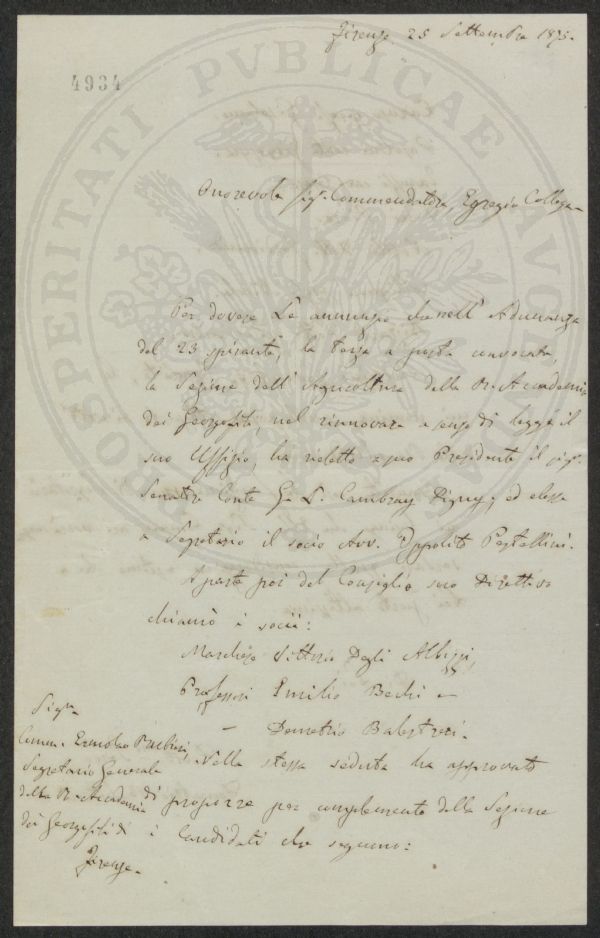 Firenze 25 Settembre 1875.
4934
PROSPERITATI PVBLICAE AVGENDAE
Onorevole Sig. Commendatore, Egregio Collega
Per dovere Le annunzio che nell' Adunanza
del 23 spirante, la terza a posta convocata,
la Sezione dell' Agricoltura della R. Accademia
dei Georgofili, nel rinnovare a senso di legge il
suo Uffizio, ha rieletto a suo Presidente il sig.
Senatore Conte L. Cambray Digny; ed elesse
a Segretario il socio Avv. Ippolito Pestellini.
A parte poi del Consiglio suo Direttivo
chiamò i socii:
Marchese Vittorio Degli Albizzi,
Professori Emilio Bechi e
— Demetrio Balestreri.
Nella stessa seduta ha approvato
di proporre per complemento della Sezione
i Candidati che seguono:
Sigr.
Comm. Ermolao Rubieri,
Segretario Generale
della R. Accademia
dei Georgofili di
Firenze.